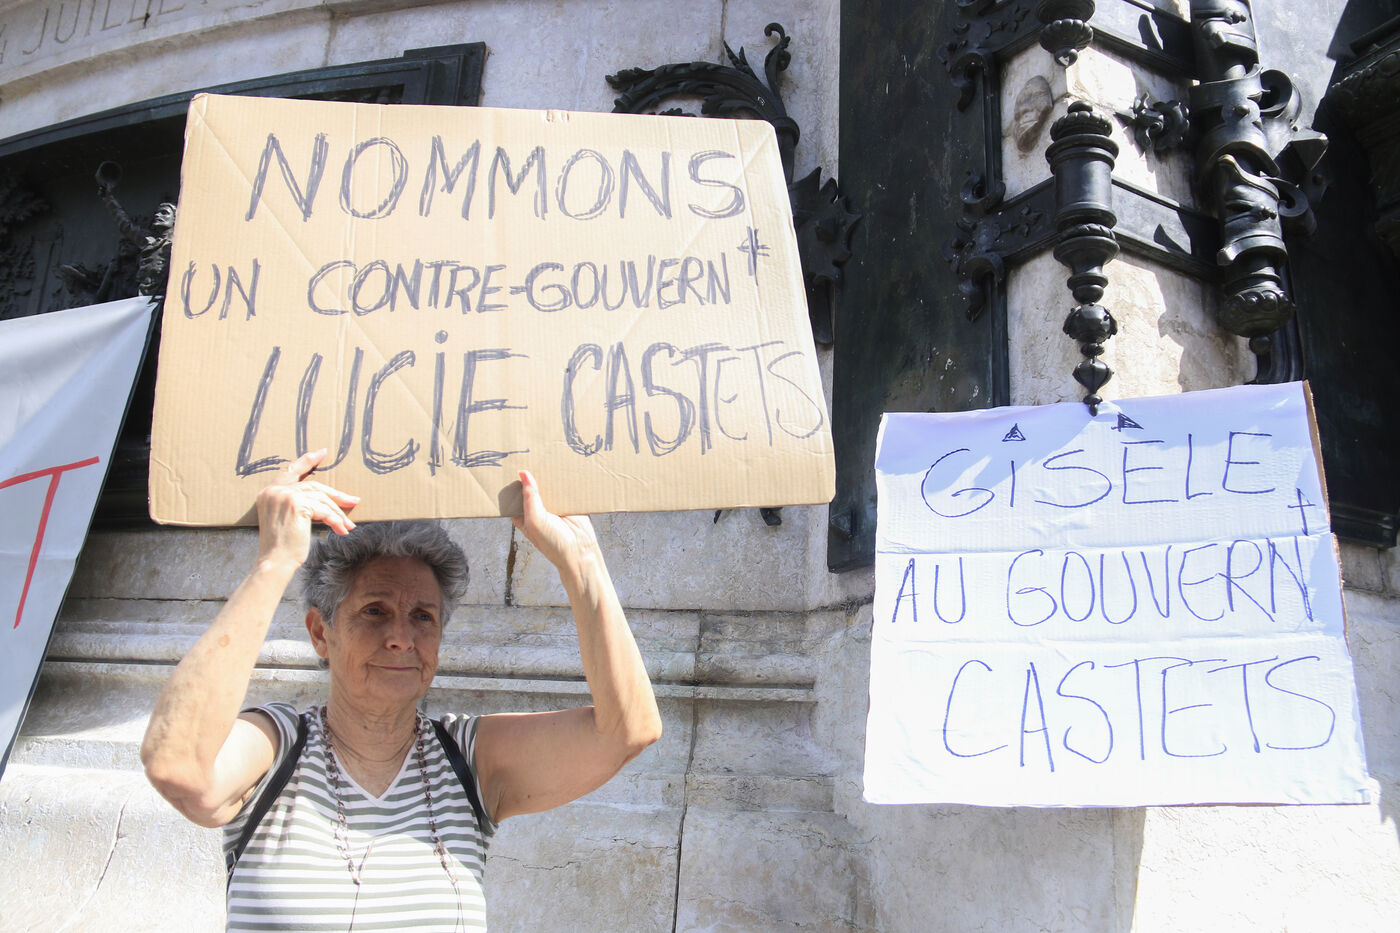 JUILLET
NOMMONS
UN CONTRE-GOUVERNᵗ
LUCIE CASTETS
T
GISÈLE
AU GOUVERNᵗ
CASTETS